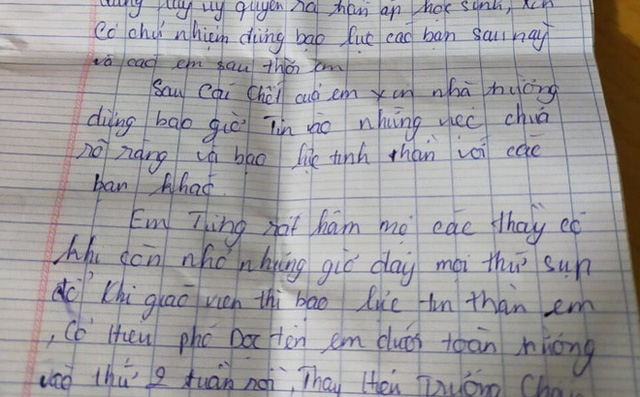 dùng lấy uy quyền ra trấn áp học sinh, xin
Cô chủ nhiệm đừng bạo lực các bạn sau này
và các em sau thời em
Sau Cái Chết của em xin nhà trường
dừng bao giờ Tin vào những việc chưa
rõ ràng và bạo lực tinh thần với các
bạn khác.
Em Từng rất hâm mộ các thầy cô
khi còn nhỏ nhưng giờ đây mọi thứ sụp
đổ Khi giáo viên thì bạo lực tin thần em
, Cô Hiệu phó Đọc tên em dưới toàn trường
vào thứ 2 tuần rồi, Thầy Hiệu Trưởng